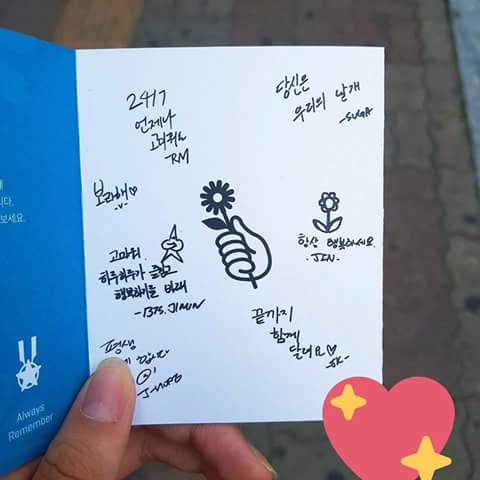 24/7
언제나
고마워요
-RM
당신은
우리의 날개
-SUGA
보라해♡
고마워
하루하루가 즐겁고
행복하기를 바래
-1375. JIMIN
항상 행복하세요.
-JIN-
끝까지
함께
달려요♡
-JK-
평생
J-HOPE
Always
Remember
니다.
보세요.